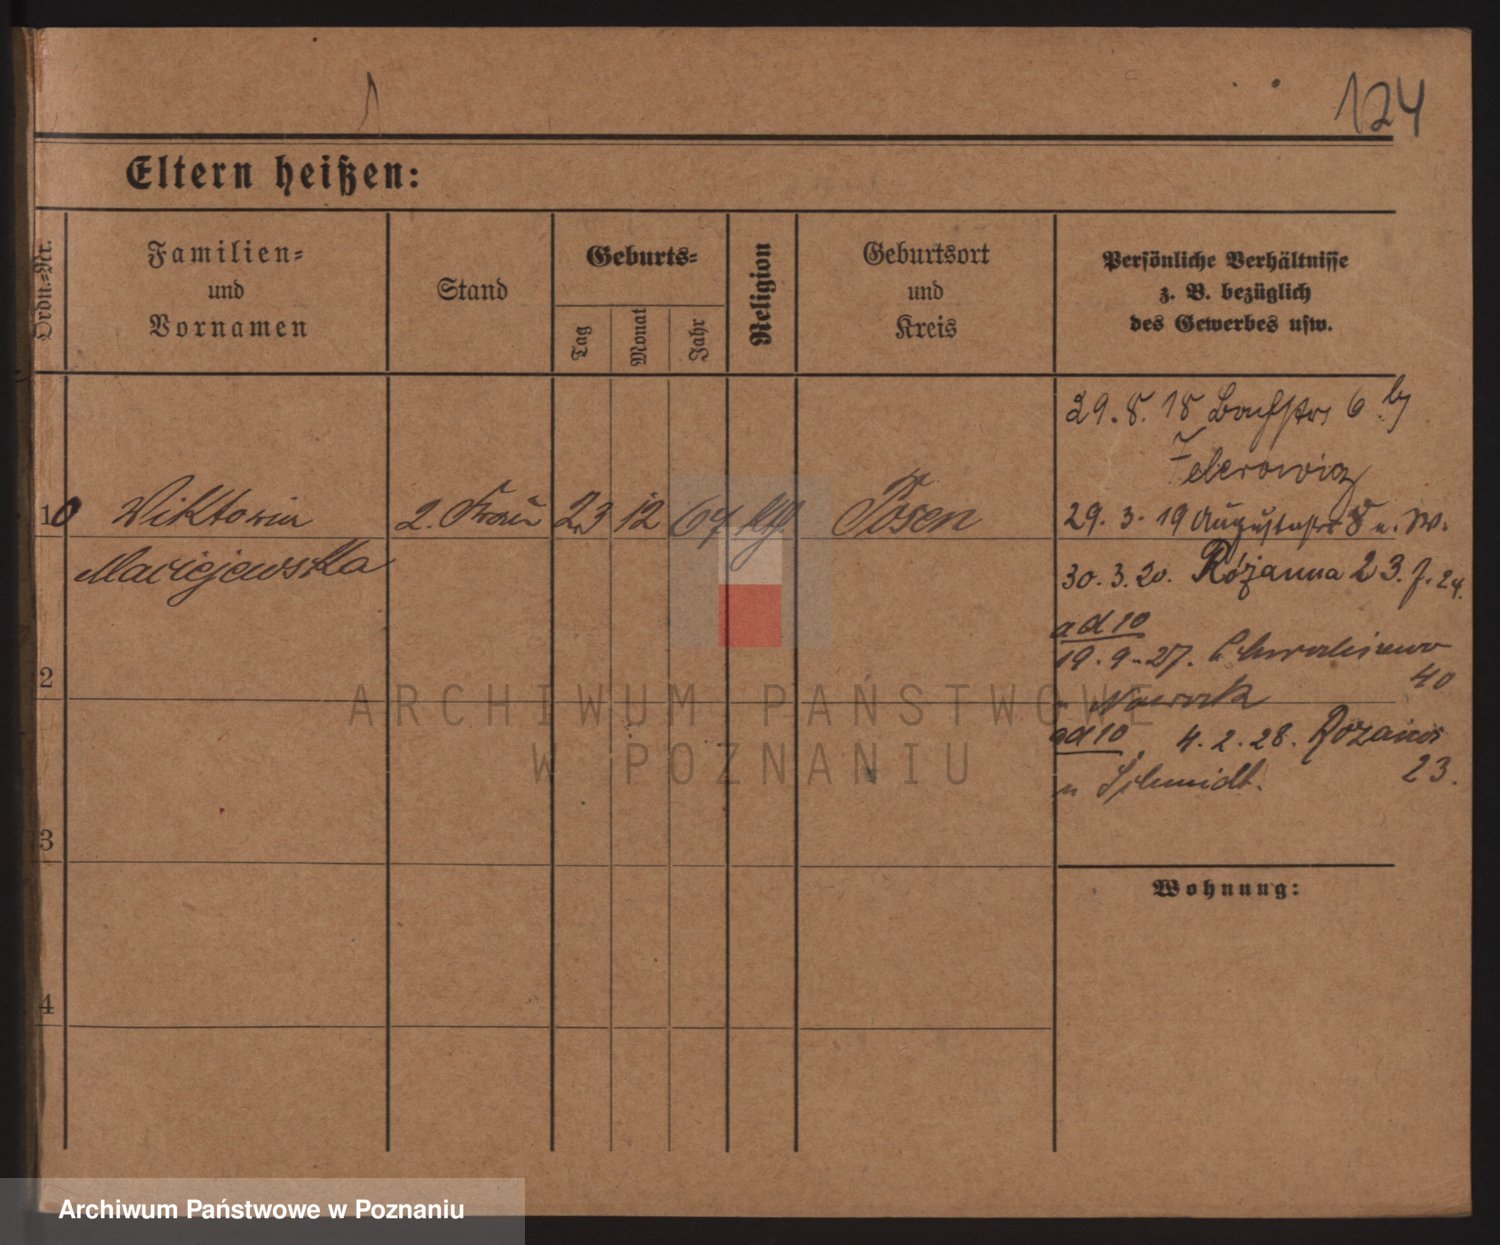 124
Eltern heißen:
Ordn.-Nr.
Familien-
und
Vornamen
Stand
Geburts-
Tag
Monat
Jahr
Religion
Geburtsort
und
Kreis
Persönliche Verhältnisse
z. B. bezüglich
des Gewerbes usw.
29. 8. 18 Bachstr. 6 by
10 Wiktoria 2. Frau 23 12 64 Posen
Maciejewska
29. 3. 19 Augustastr 8
30. 3. 20. Różanna 23.
ad 10
19. 9. 27.
40
Nowak
ad 10 4. 2. 28.
23.
Schmidt.
2
3
4
Wohnung:
ARCHIWUM PAŃSTWOWE
W POZNANIU
Archiwum Państwowe w Poznaniu